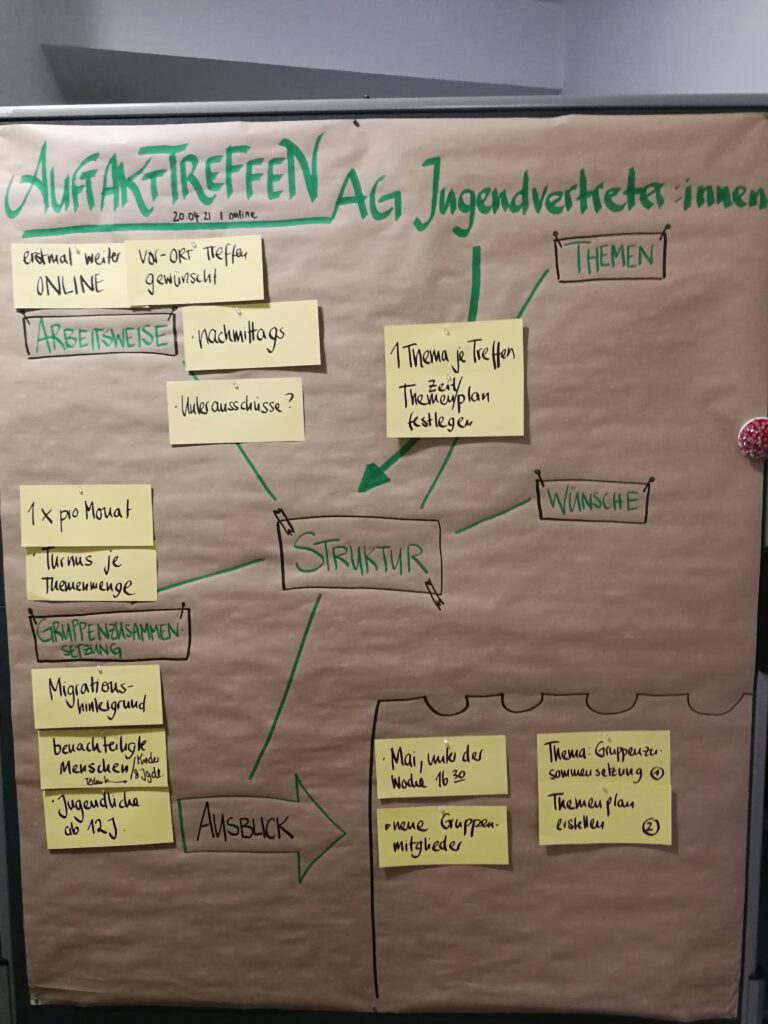 AUFTAKTTREFFEN
20.04.21 | online
AG Jugendvertreter:innen
erstmal weiter
ONLINE
Vor-ORT Treffen
gewünscht
ARBEITSWEISE
·nachmittags
·Unterausschüsse?
THEMEN
1 Thema je Treffen
Zeit/
Themenplan
festlegen
WÜNSCHE
STRUKTUR
1 x pro Monat
Turnus je
Themenmenge
GRUPPENZUSAMMEN-
SETZUNG
Migrations-
hintergrund
benachteiligte
Menschen/Kinder
& Jgdl.
·Jugendliche
ab 12 J.
AUSBLICK
·Mai, unter der
Woche 16 30
·neue Gruppen-
mitglieder
Thema: Gruppenzu-
sammensetzung 1
Themenplan
erstellen 2